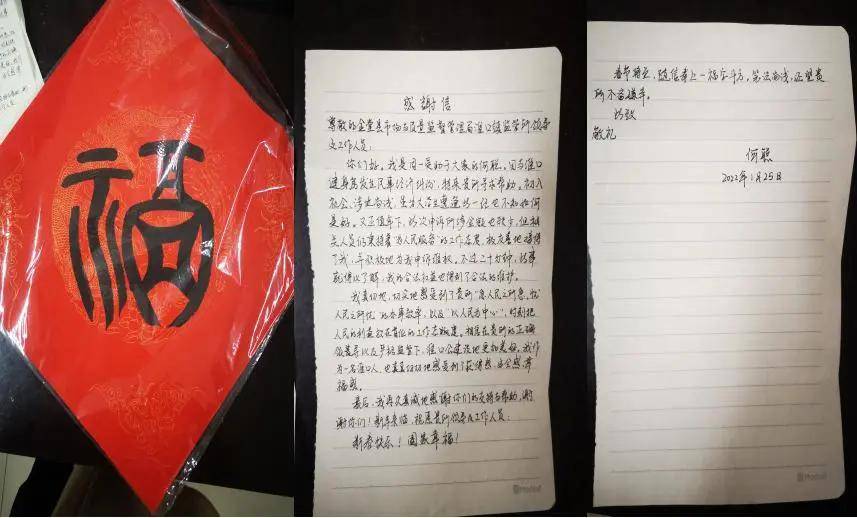 福
感謝信
尊敬的金堂县市场与质量监督管理局淮口镇监管所领导
及工作人员：
你们好。我是周一受助于大家的何聪。因与淮口
健身房发生民事经济纠纷，特来贵所寻求帮助。初入
社会，涉世尚浅，学生大学生遭遇此一任也不知如何
是好。又正值年下，此次申诉所涉金额也较少，但相
关人员仍秉持着“为人民服务”的工作态度，极友善地接待
了我，并积极地为我申诉维权。不过二十分钟，此事
就得以了解，我的合法权益地得到了合法的维护。
我真切地，切实地感受到了贵所“急人民之所急，忧
人民之所忧”的办事效率，以及“以人民为中心”，时刻把
人民的利益放在首位的工作态度。相信在贵所的正确
领导以及严格监管下，淮口会建设地更加美好。我作
为一名淮口人，也真真切切地感受到了获得感，安全感，幸
福感。
最后，我再次真诚地感谢你们的支持与帮助，谢
谢你们！新年来临，祝愿贵所领导及工作人员：
新春快乐！阖家幸福！
春节将至，随信奉上一福字斗方，笔法尚浅，还望贵
所不吝嫌弃。
此致
敬礼
何聪
2022年1月25日